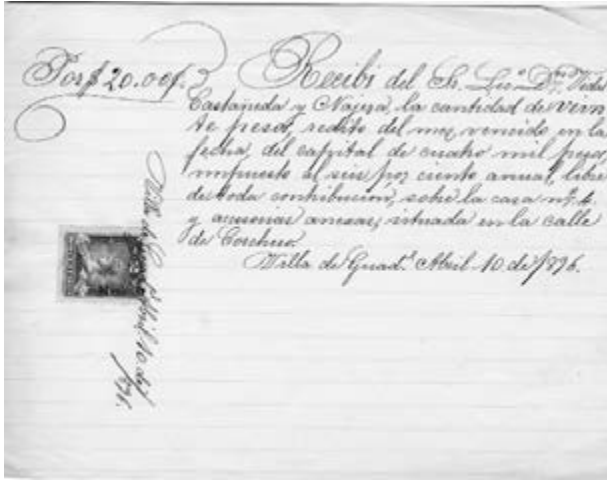 Por $ 20.00 c.
Recibi del Sr. Lic. Dn. Vidal
Castañeda y Najera, la cantidad de vein
te pesos, redito del mes vencido en la
fecha, del capital de cuatro mil pesos
impuesto al seis por ciento anual, libre
de toda contribucion, sobre la casa nº 4.
y accesorias anexas, situada en la calle
de Cocheros.
Villa de Guadl. Abril 10 de 1896.
Villa de Guadl. Abril 10 de
1896.